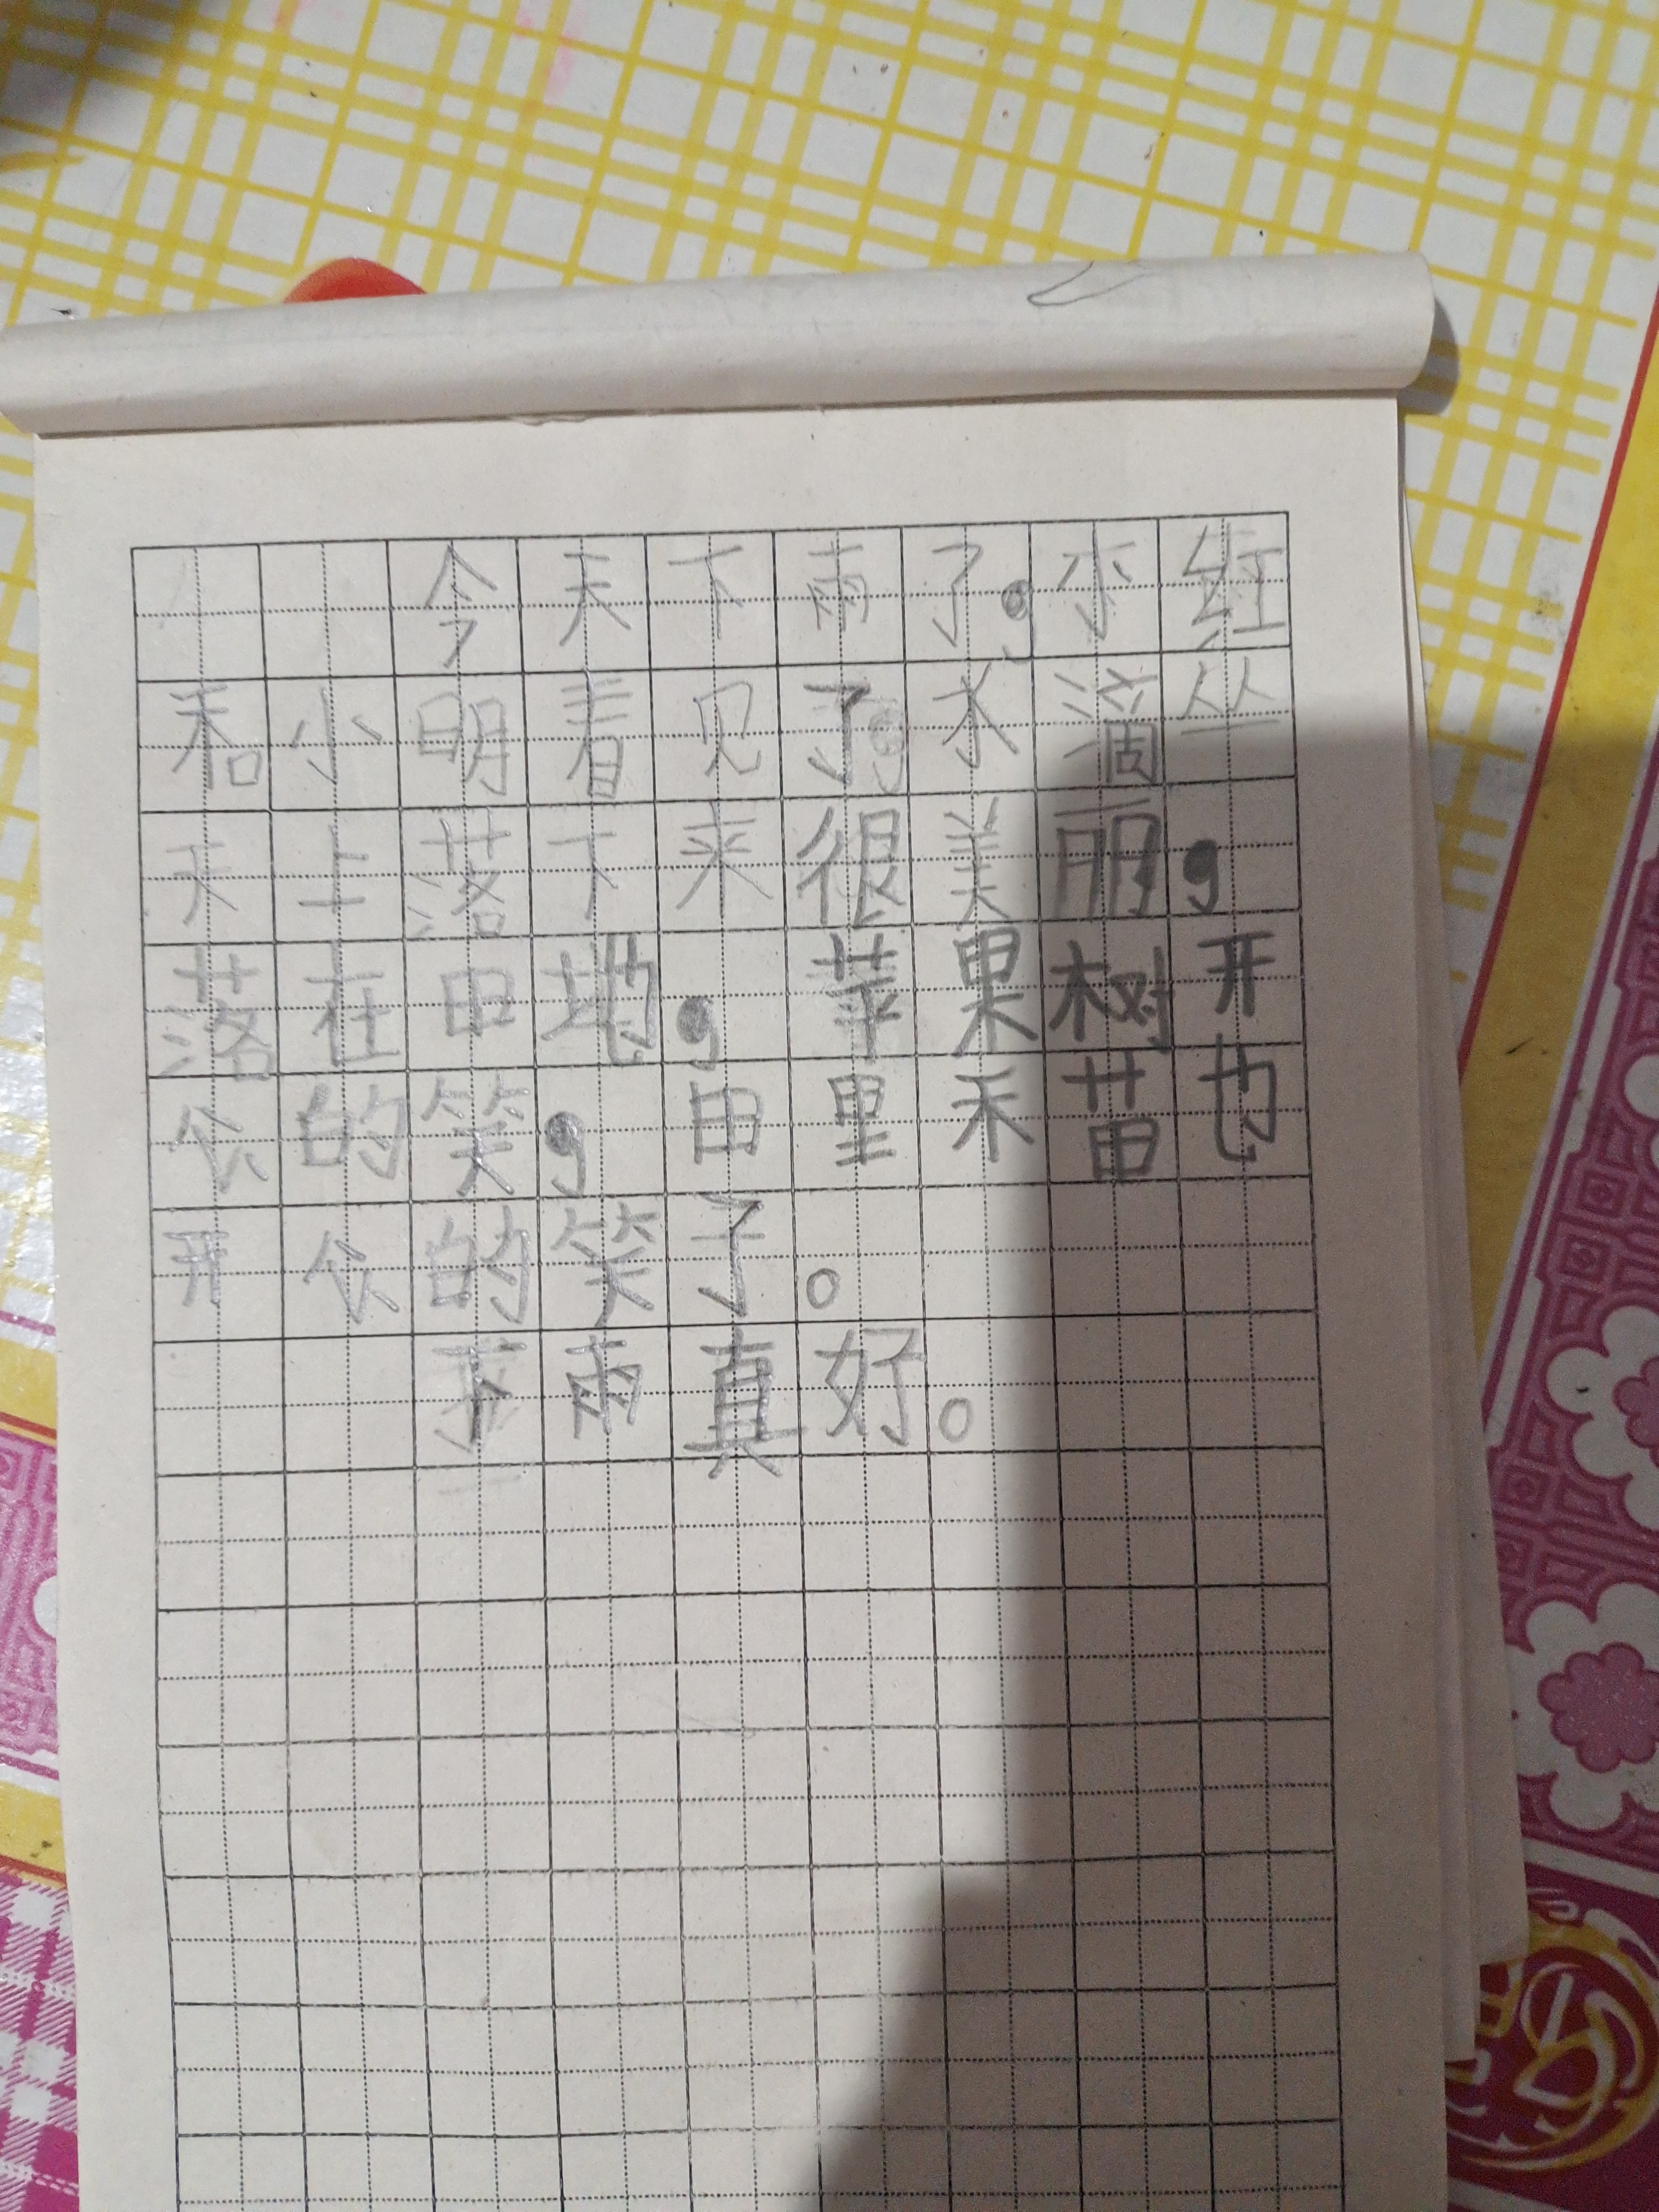 今天下雨了，小红
和小明看见了水滴丛
天上落下来很美丽，
落在田地，苹果树开
伈的笑，田里禾苗也
开伈的笑了。
下雨真好。